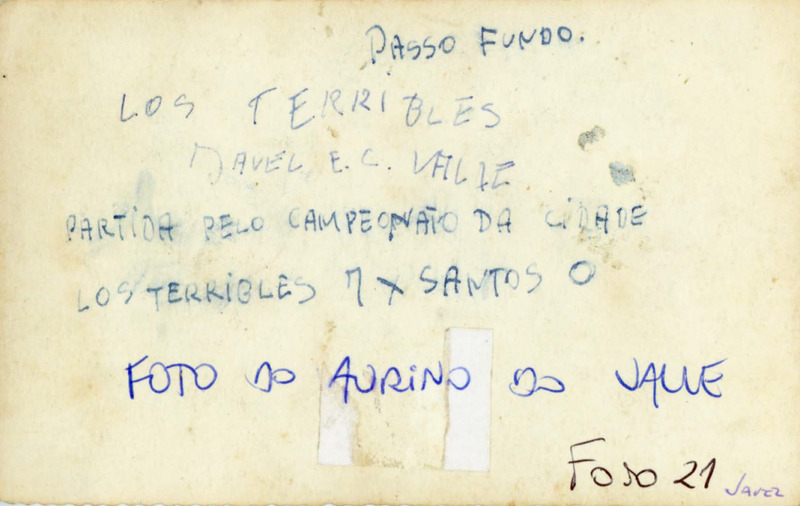 PASSO FUNDO.
LOS TERRIBLES
E.C.
PARTIDA PELO CAMPEONATO DA CIDADE
LOS TERRIBLES 7 X SANTOS 0
FOTO DO AURINO DO VALLE
FOTO 21